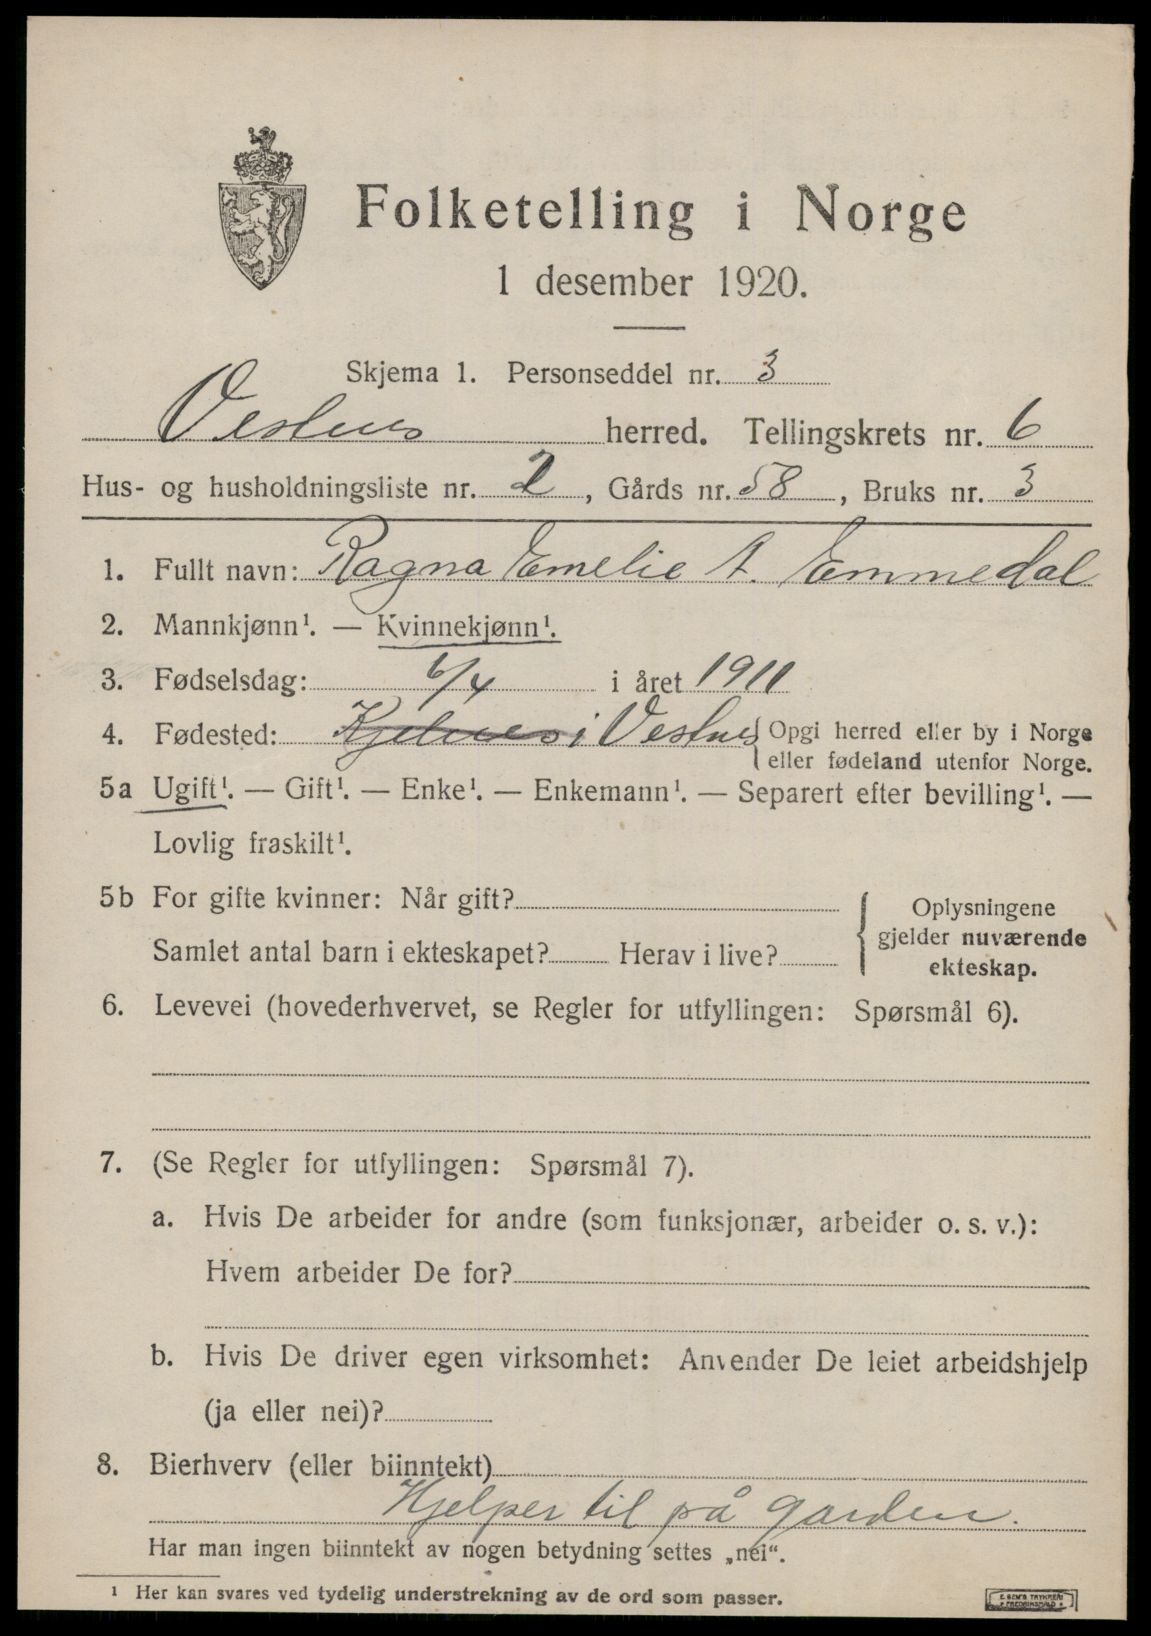 Folketelling i Norge
1 desember 1920.
Skjema 1. Personseddel nr. 3
Vestnes herred. Tellingskrets nr. 6
Hus- og husholdningsliste nr. 2, Gårds nr. 58, Bruks nr. 3
1. Fullt navn: Ragna Emelie A. Emmedal
2. Mannkjønn¹. — Kvinnekjønn¹.
3. Fødselsdag: 6/4 i året 1911
4. Fødested: i Vestnes { Opgi herred eller by i Norge
eller fødeland utenfor Norge.
5a Ugift¹. — Gift¹. — Enke¹. — Enkemann¹. — Separert efter bevilling¹. —
Lovlig fraskilt¹.
5b For gifte kvinner: Når gift?
Samlet antal barn i ekteskapet? Herav i live?
Oplysningene
gjelder nuværende
ekteskap.
6. Levevei (hovederhvervet, se Regler for utfyllingen: Spørsmål 6).
7. (Se Regler for utfyllingen: Spørsmål 7).
a. Hvis De arbeider for andre (som funksjonær, arbeider o. s. v.):
Hvem arbeider De for?
b. Hvis De driver egen virksomhet: Anvender De leiet arbeidshjelp
(ja eller nei)?
8. Bierhverv (eller biinntekt)
Hjelper til på garden.
Har man ingen biinntekt av nogen betydning settes „nei“.
¹ Her kan svares ved tydelig understrekning av de ord som passer.
E. SEM'S TRYKKERI
FREDRIKSHALD